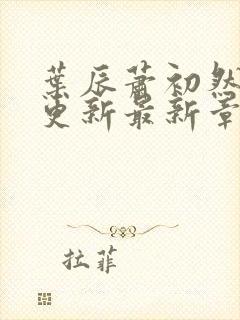 葉辰蕭初然
更新最新章
拉菲